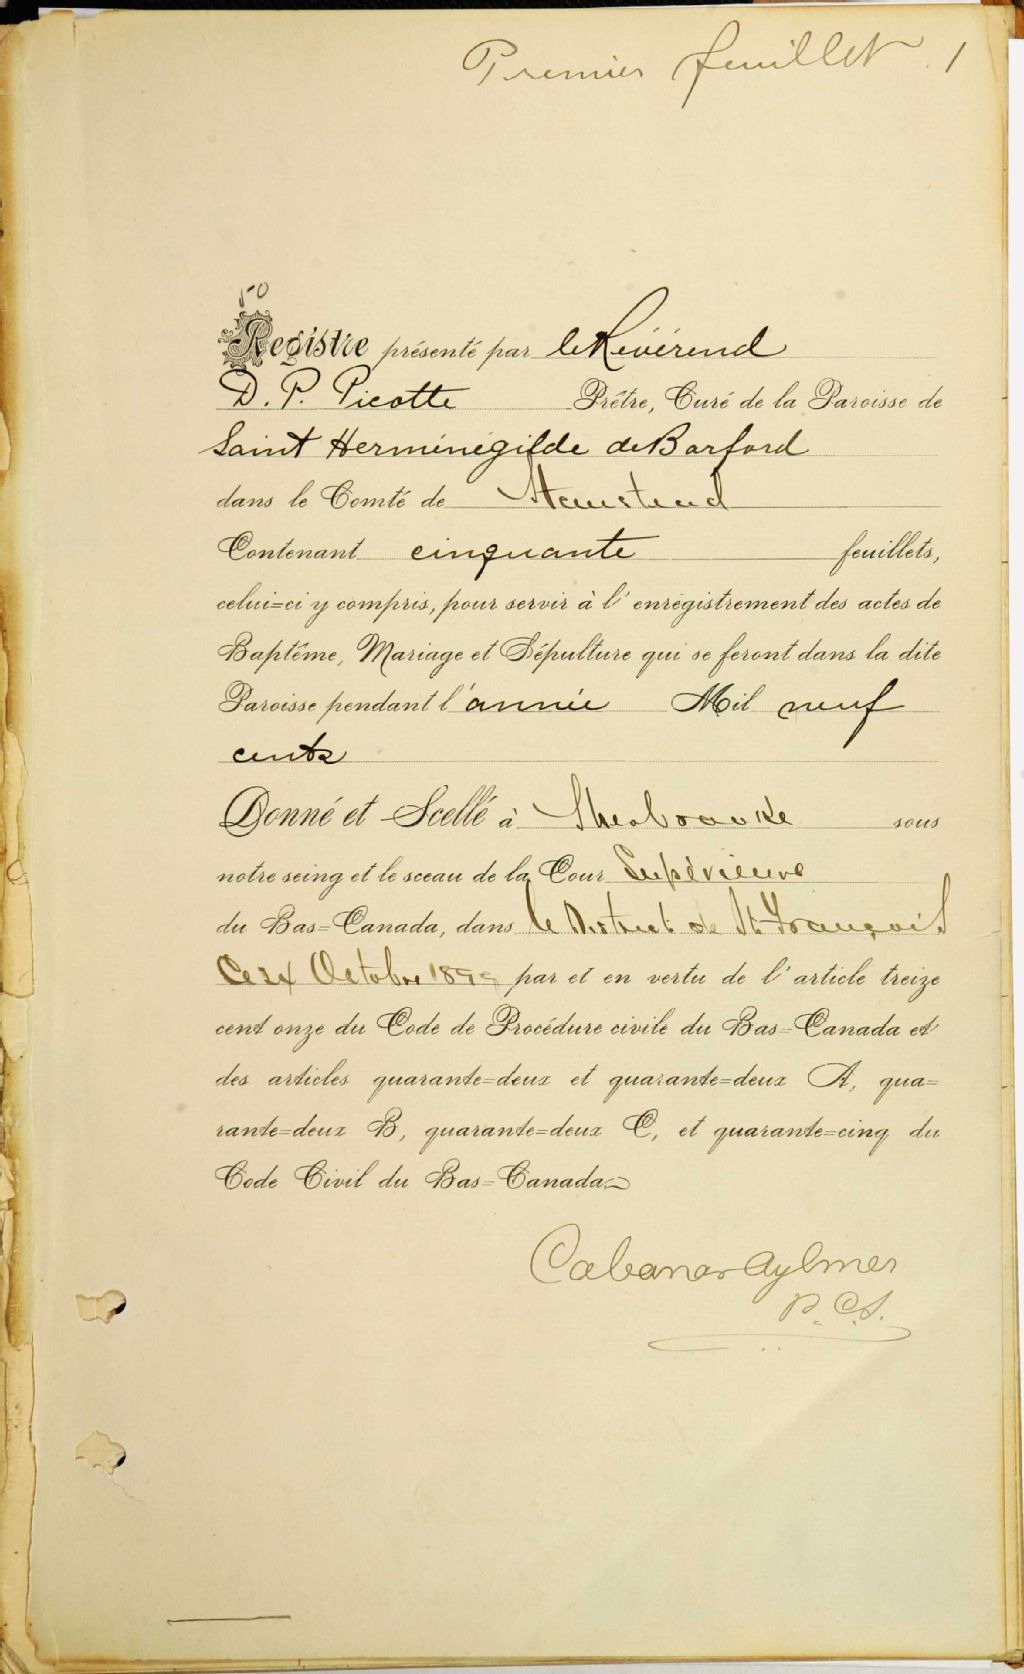 Premier feuillet 1
50
Registre présenté par le Révérend
D. P. Picotte Prêtre, Curé de la Paroisse de
Saint Herménégilde de Barford
dans le Comté de Stanstead
Contenant cinquante feuillets,
celui=ci y compris, pour servir à l'enregistrement des actes de
Baptême, Mariage et Sépulture qui se feront dans la dite
Paroisse pendant l'année Mil neuf
cents
Donné et Scellé à Sherbrooke sous
notre seing et le sceau de la Cour Supérieure
du Bas=Canada, dans le District de St François
Ce Octobre 1899 par et en vertu de l'article treize
cent onze du Code de Procédure civile du Bas=Canada et
des articles quarante=deux et quarante=deux A, qua=
rante=deux B, quarante=deux C, et quarante=cinq du
Code Civil du Bas=Canada.
Cabana & Aylmer
P. C. S.